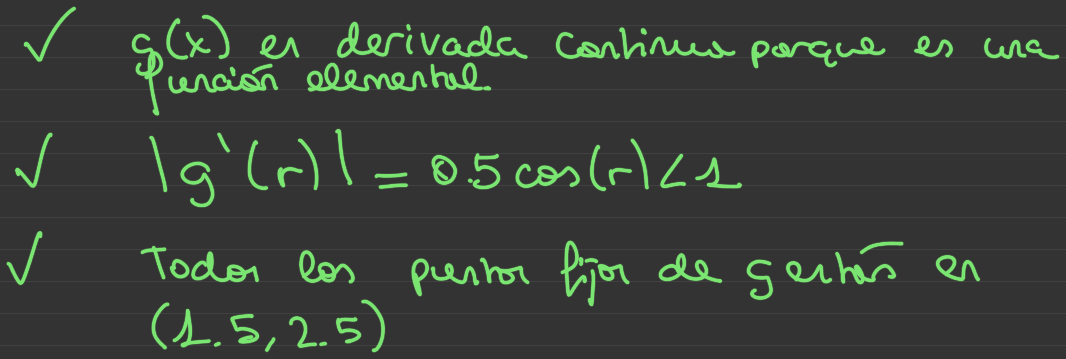 ✓ g(x) es derivada continua porque es una
función elemental.
✓ |g'(r)| = 0.5 cos(r) < 1.
✓ Todos los puntos fijos de g están en
(1.5, 2.5)